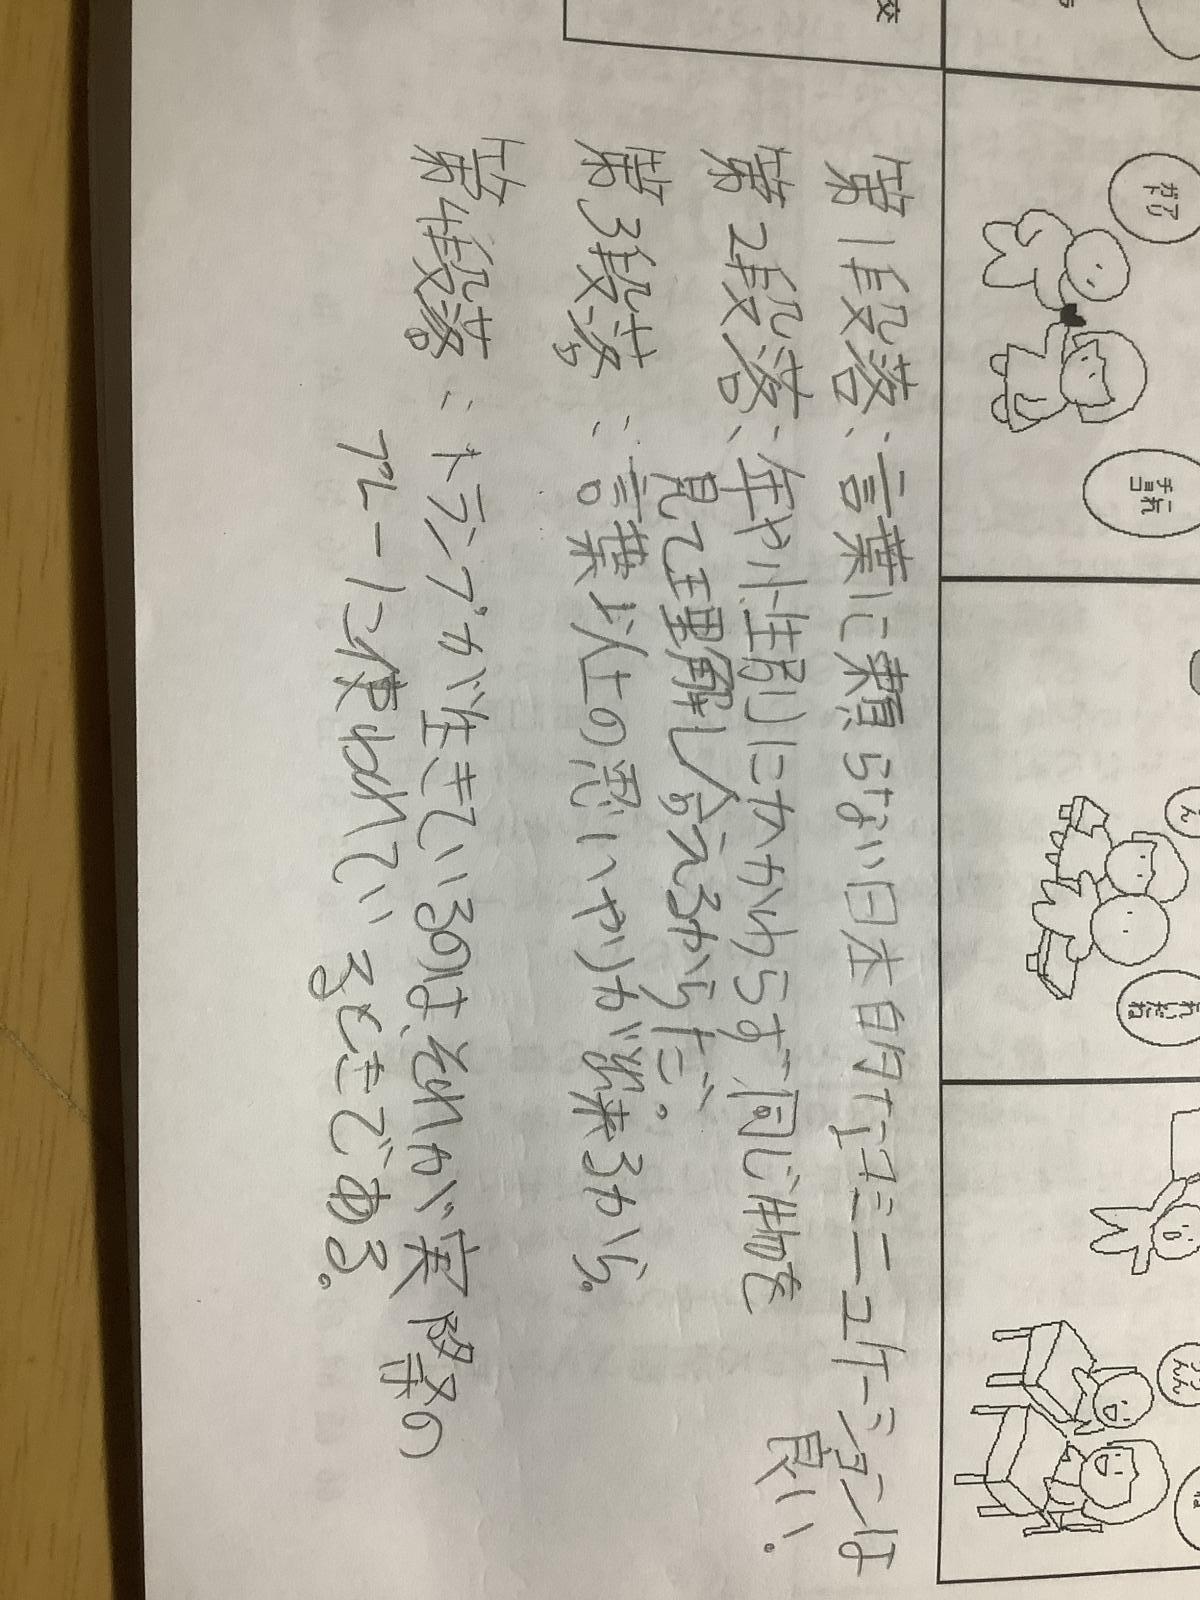 第1段落:言葉に頼らない日本的なコミニュケーションは
良い。
第2段落:年や性別にかかわらず同じ物を
見て理解し合えるからだ。
第3段落:言葉以上の思いやりが出来るから。
第4段落:トランプが生きているのは、それが実際の
プレーに使われているときである。
チョコ